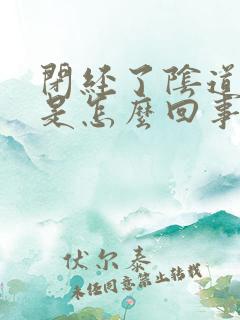 閉経了陰道
是怎麼回事
伏尔泰
未经同意禁止转载